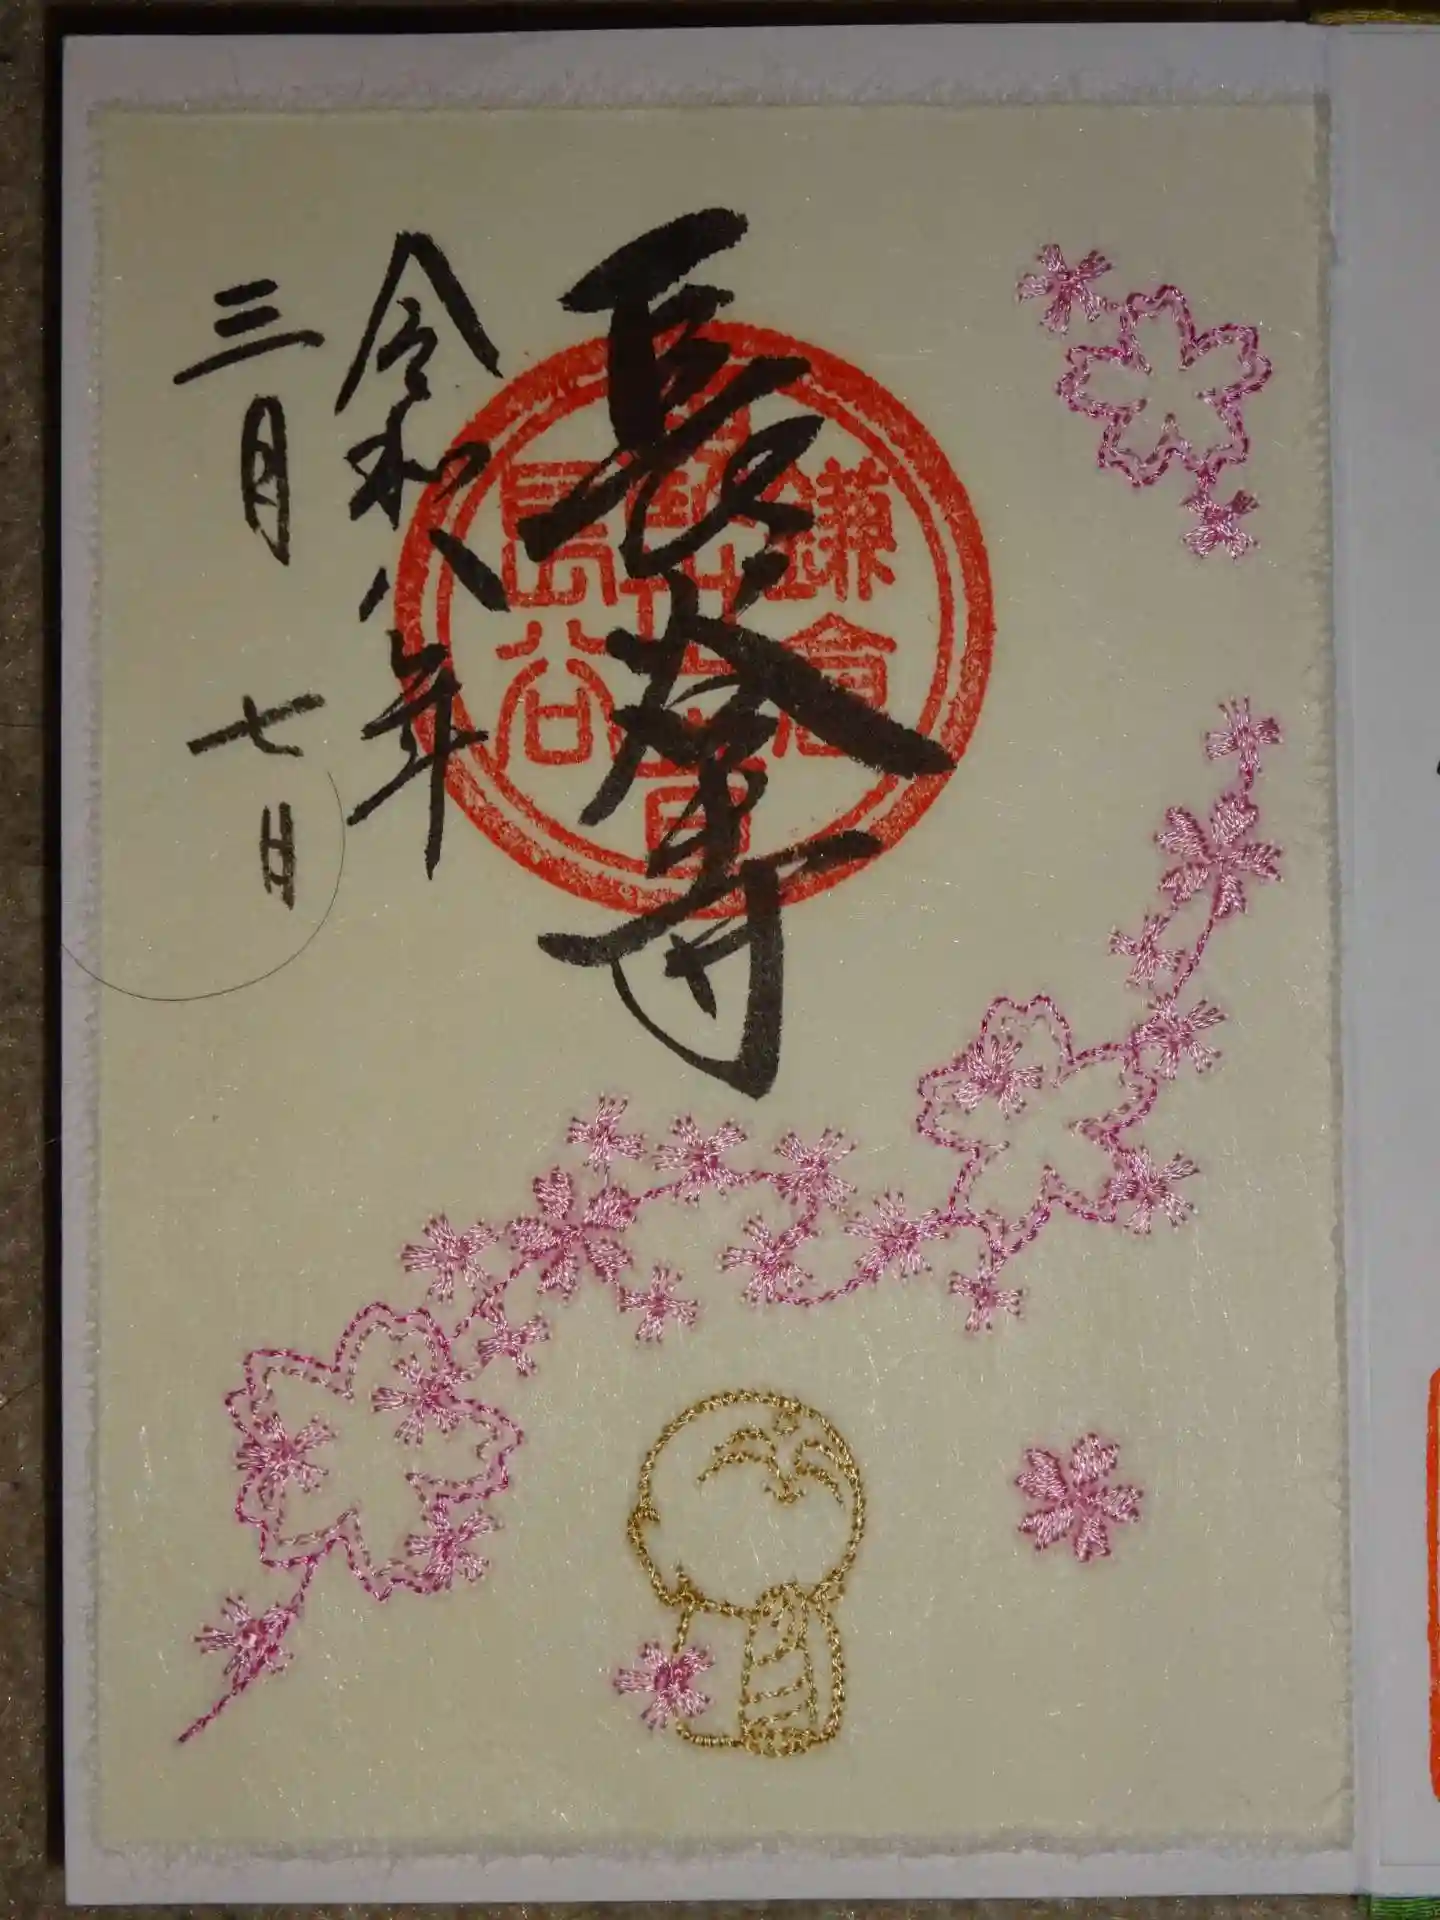 長谷寺
令和八年
三月七日
鎌倉
長谷